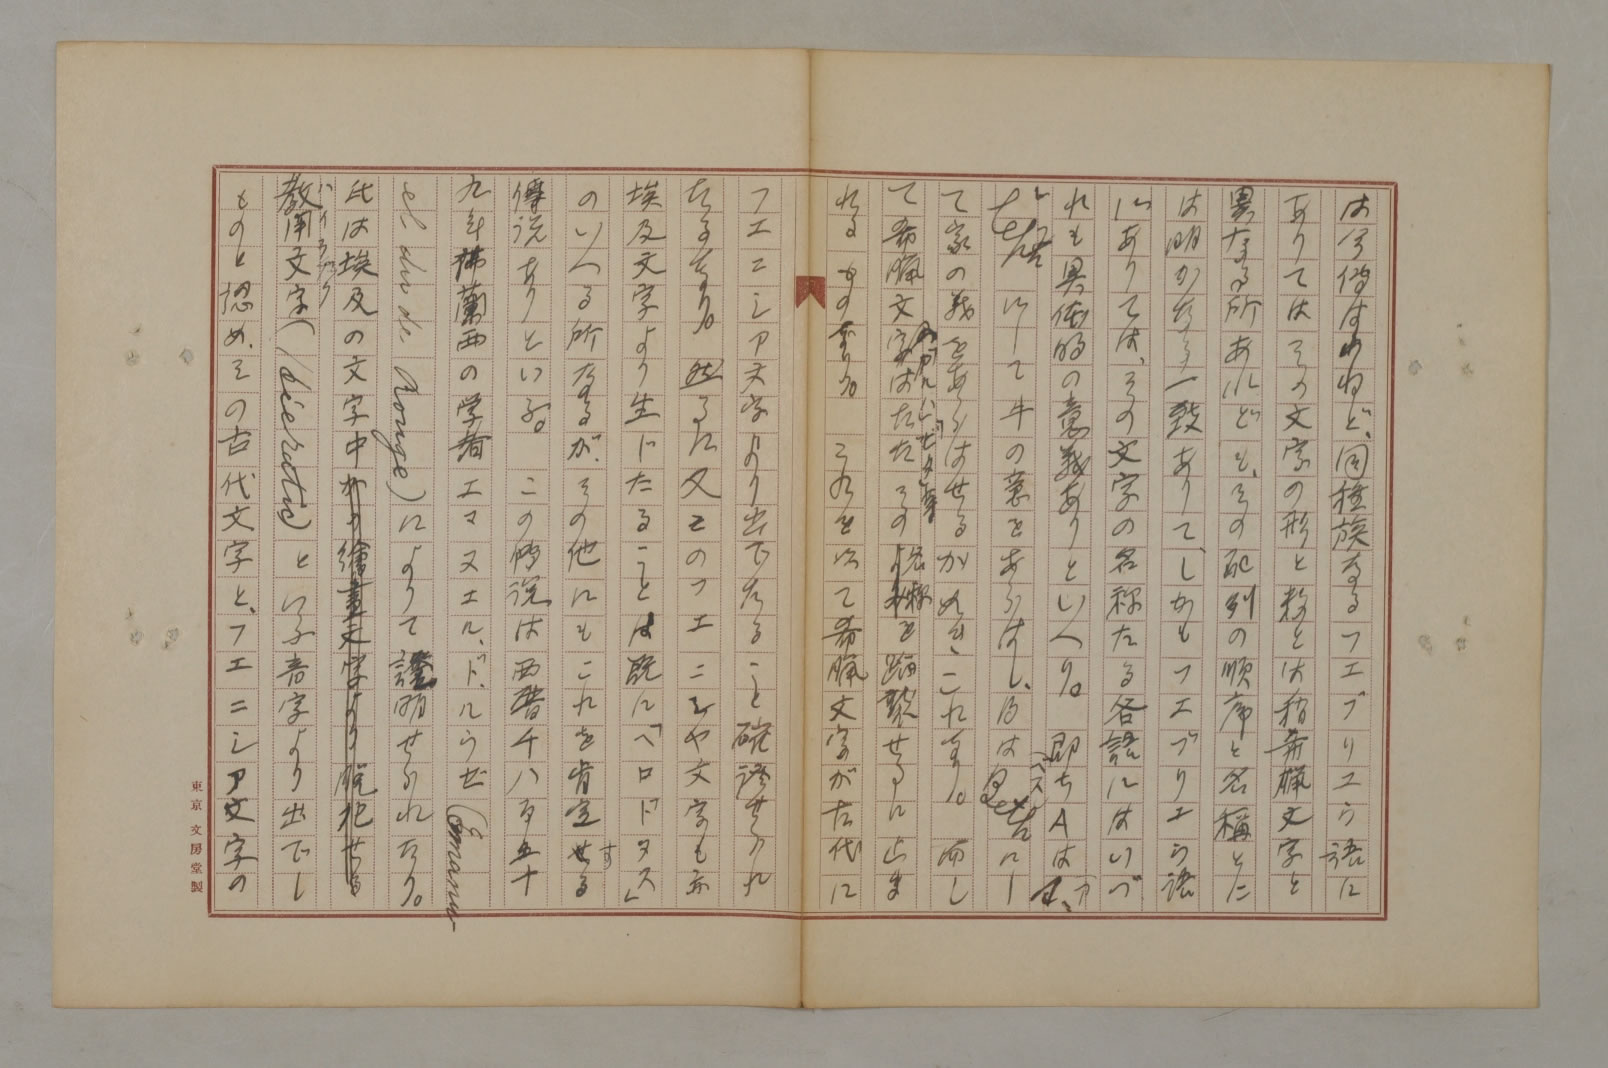 は今傳はらねど、同種族なるフエブリユウ語に
ありてはその文字の形と数とは稍希臘文字と
異なる所あれども、その配列の順序と名稱とに
は明かなる一致ありて、しかもフエブリユウ語
にありては、その文字の名称たる各語にはいづ
れも具体的の意義ありといへり。即ちAは
にして牛の意をあらはし、Bは にし
て家の義をあらはせるが如き、これなり。而し
て希臘文字はただその名称を踏襲せるに止ま
れるものなり。これを以て希臘文字が古代に
フエニシア文字より出でたること確證せられ
たるなり。然るに又このフエニシヤ文字も亦
埃及文字より生じたることは既に「ヘロドタス」
のいへる所なるが、その他にもこれを肯定する
傳説ありといふ。この傳説は西暦千八百五十
九年佛蘭西の学者エマヌエル、ド、ルウゼ(Emanu-
el du de Rouge)によりて證明せられたり。
氏は埃及の文字中かの繪畫文字より脱化せる
教用文字(hieratic)といふ音字より出でし
ものと認め、その古代文字と、フエニシア文字の
東京 文房堂製